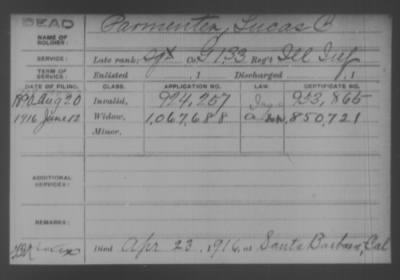 DEAD
NAME OF SOLDIER: Parmenter, Lucas
SERVICE: Late rank, Sgt Co. G 133 Reg't Ill Inf
TERM OF SERVICE: Enlisted , 1 Discharged , 1
DATE OF FILING. CLASS. APPLICATION NO. LAW. CERTIFICATE NO.
Aug 20 Invalid, 994,257 953,865
1916 June 12 Widow, 1,067,688 850,721
Minor,
ADDITIONAL SERVICES:
REMARKS:
Died Apr 23, 1916, at Santa Barbara, Cal